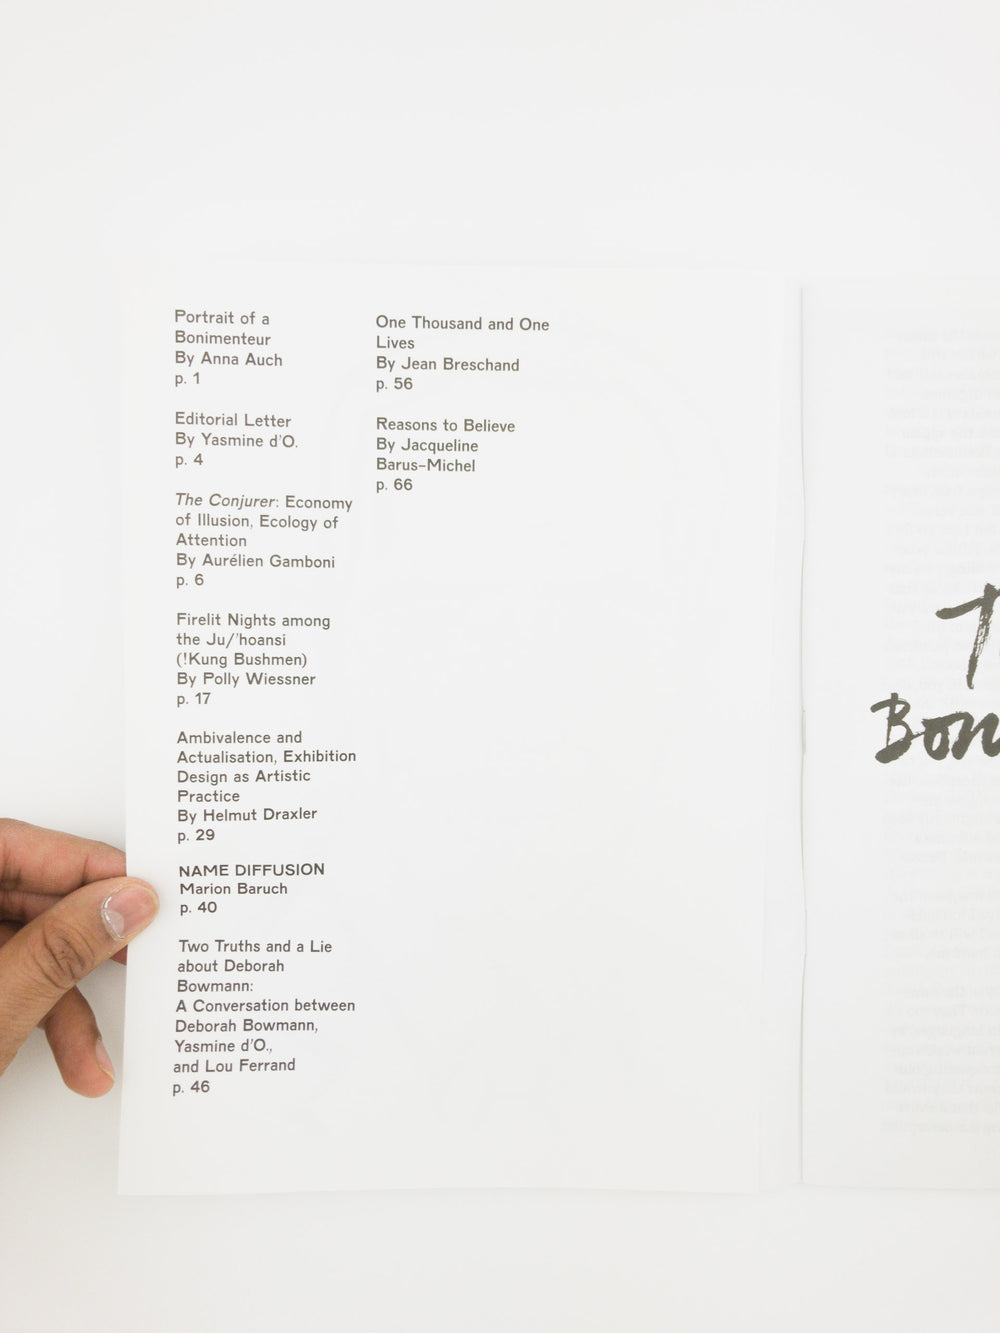 Portrait of a
Bonimenteur
By Anna Auch
p. 1
Editorial Letter
By Yasmine d'O.
p. 4
The Conjurer: Economy
of Illusion, Ecology of
Attention
By Aurélien Gamboni
p. 6
Firelit Nights among
the Ju/'hoansi
(!Kung Bushmen)
By Polly Wiessner
p. 17
Ambivalence and
Actualisation, Exhibition
Design as Artistic
Practice
By Helmut Draxler
p. 29
NAME DIFFUSION
Marion Baruch
p. 40
Two Truths and a Lie
about Deborah
Bowmann:
A Conversation between
Deborah Bowmann,
Yasmine d'O.,
and Lou Ferrand
p. 46
One Thousand and One
Lives
By Jean Breschand
p. 56
Reasons to Believe
By Jacqueline
Barus-Michel
p. 66